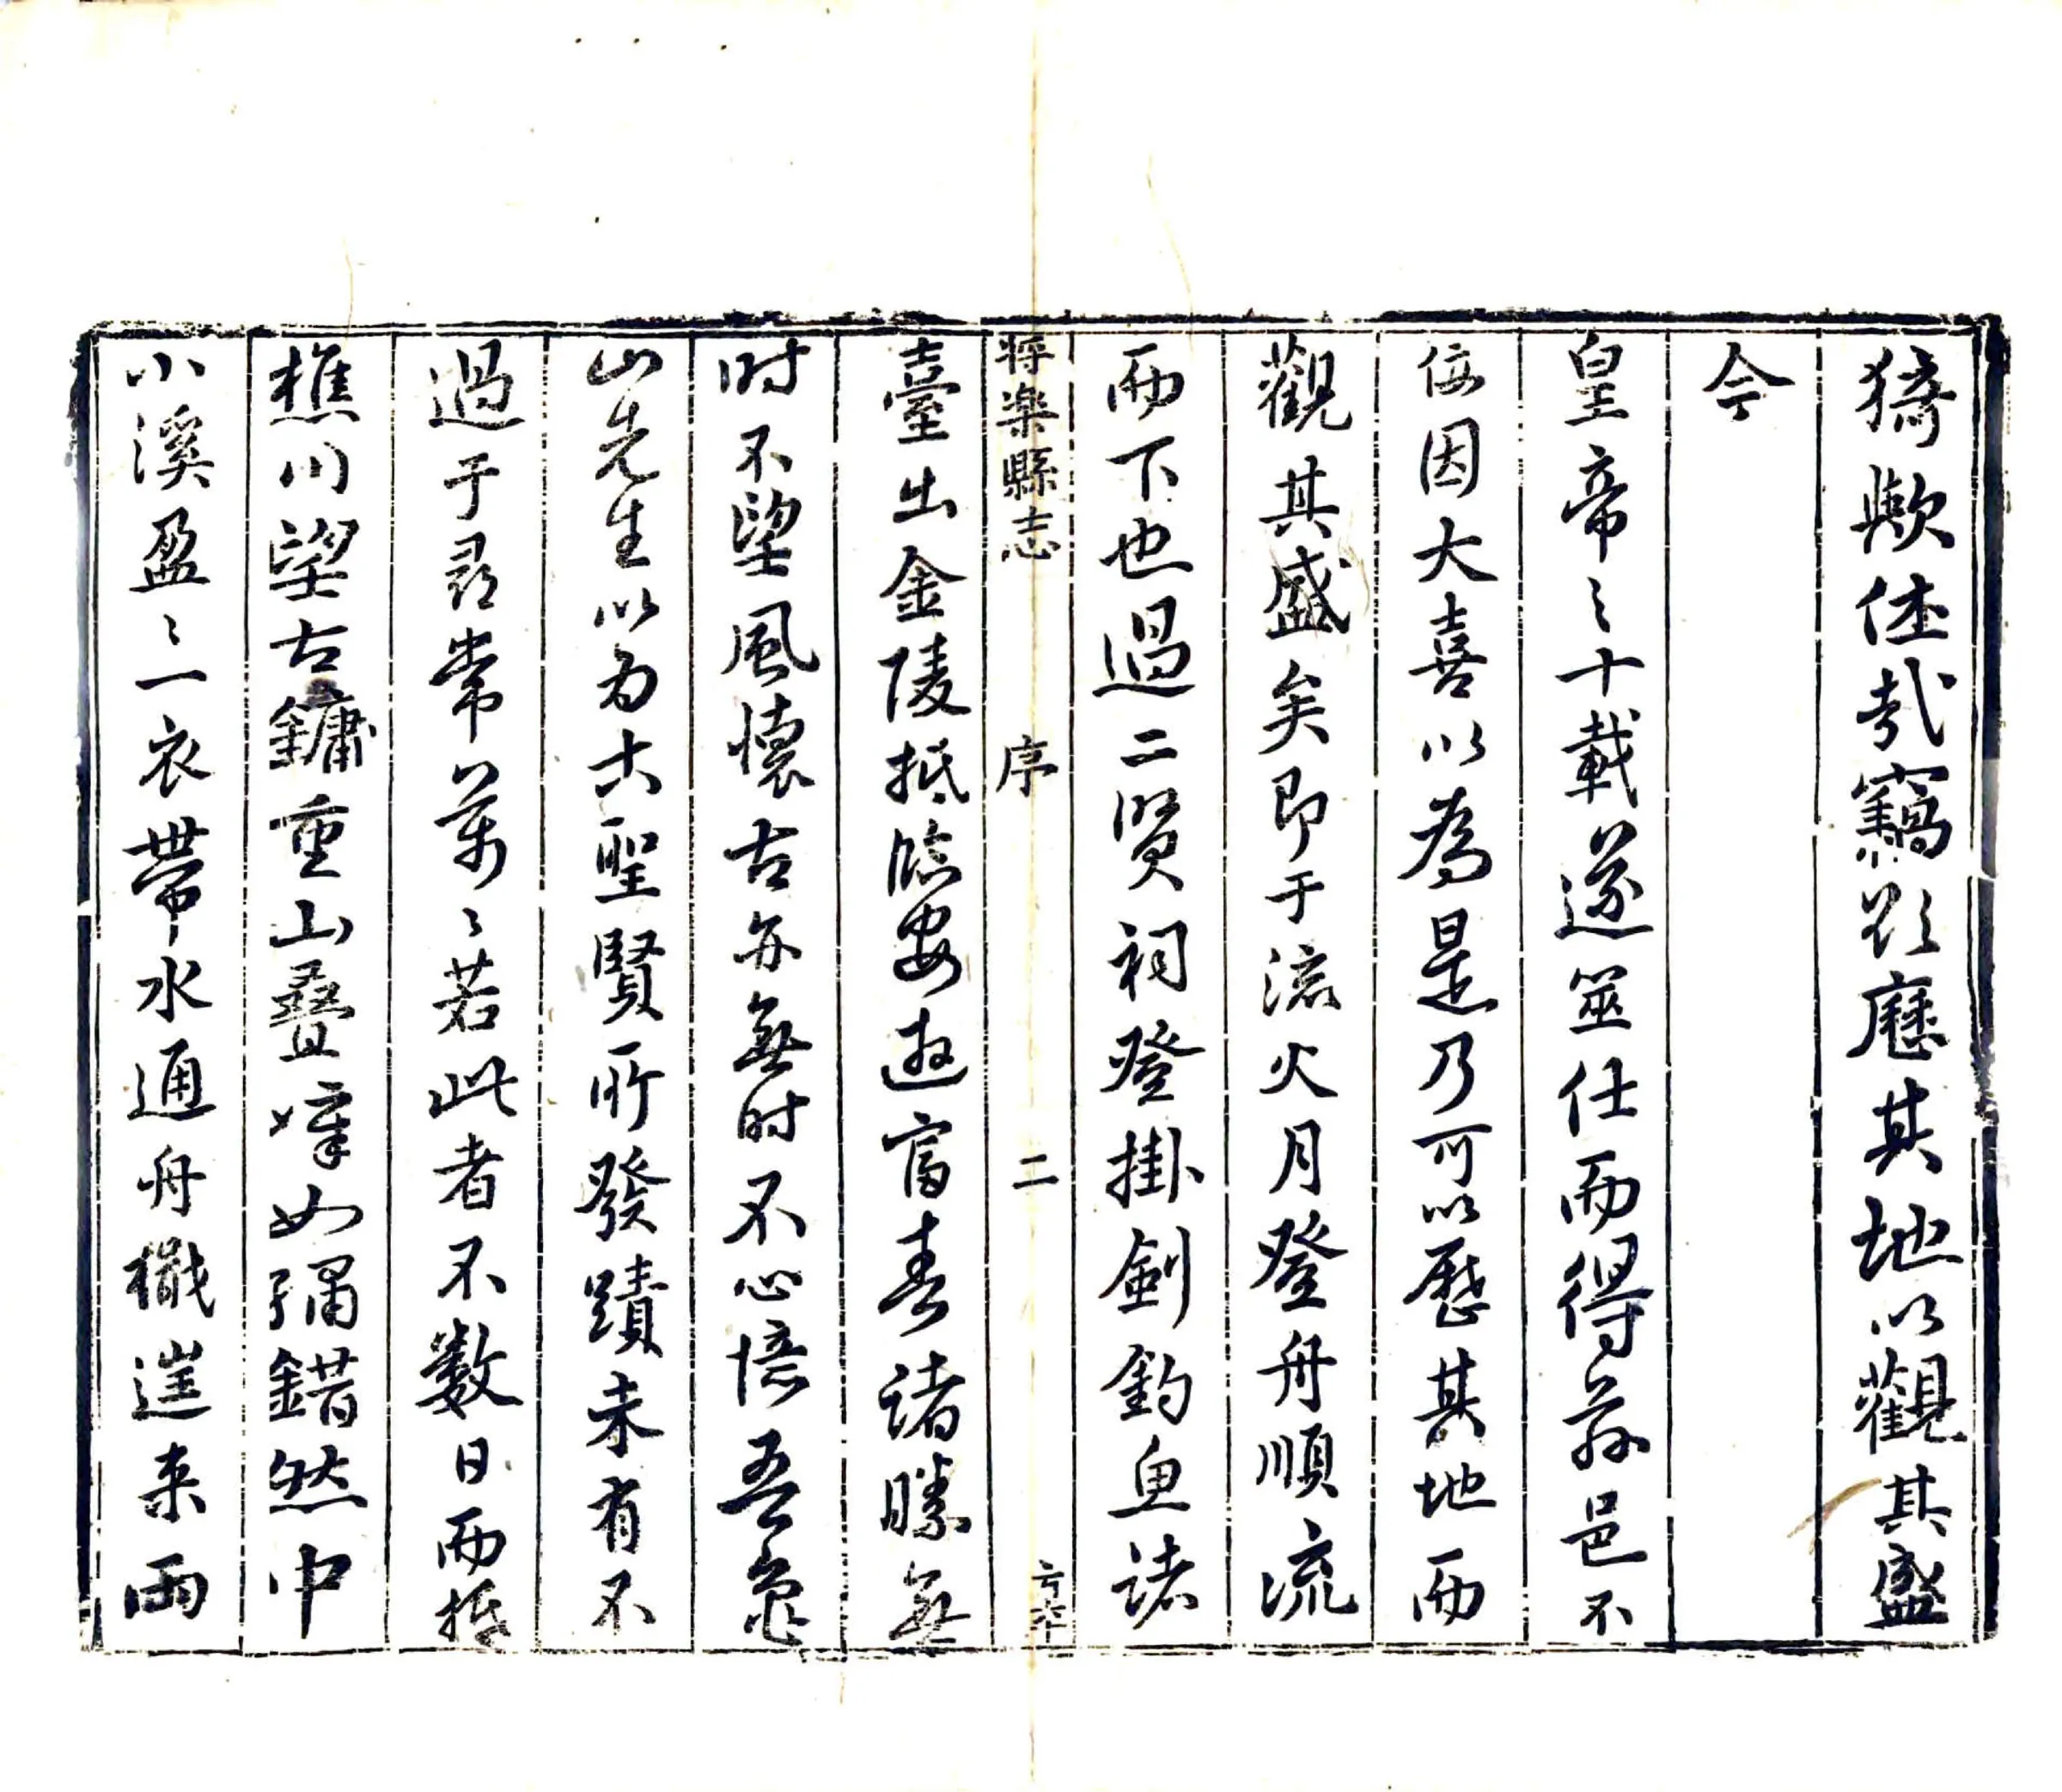 猗歟休哉竊欲歷其地以觀其盛
今
皇帝之十載遂筮仕而得茲邑不
佞因大喜以為是乃可以歷其地而
觀其盛矣即于流火月登舟順流
而下也過二賢祠登掛劍釣魚諸
将楽縣志 序 二
臺出金陵抵臨安遊富春諸勝無
时不望風懷古亦無时不心悟吾龜
山先生以為古聖賢所發蹟未有不
過于尋常萬〻若此者不数日而抵
樵川望古鏞重山疊嶂如彈錯然中
小溪盈〻一衣帶水通舟檝往来而